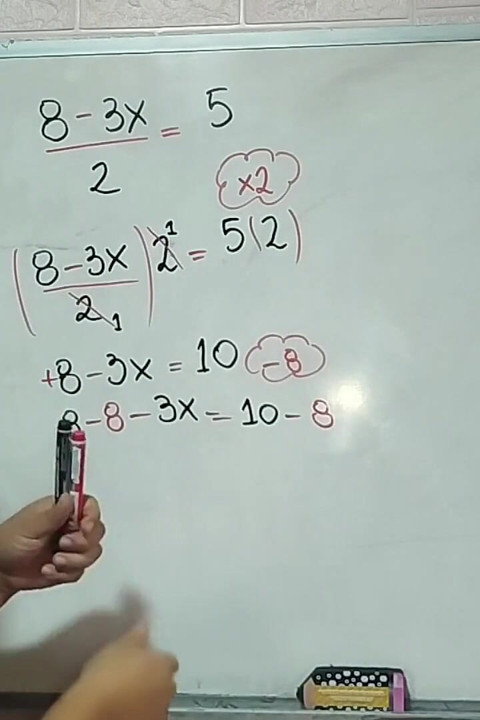 8 - 3x / 2 = 5
×2
(8 - 3x / 2 1) 2 1 = 5(2)
+8 - 3x = 10 -8
8 - 8 - 3x = 10 - 8